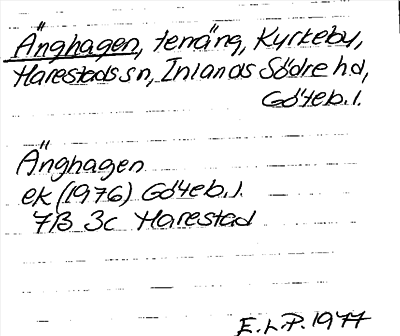 Änghagen, terräng, Kyrkeby,
Harestads sn, Inlands Södre hd,
Göteb. l.
Änghagen
ek (1976) Göteb. l.
7B 3c Harestad
E.L.P. 1977